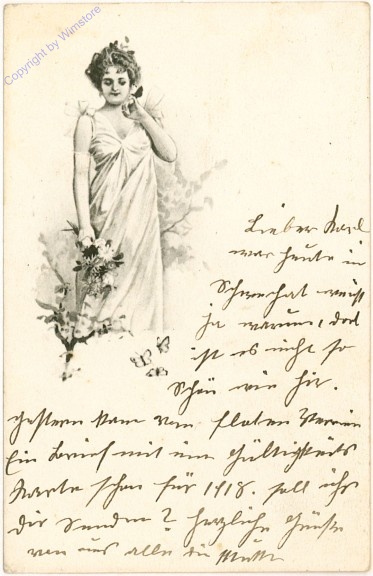 Copyright by Wimstore
Lieber Karl
war heute in
Schwechat weißt
ja warum, doch
ist es nicht so
Schön wie hir.
gestern kam vom Verein
Ein Brief mit einer Gültigkeits
Karte schon für 1918. soll ich's
dir Senden? herzliche Grüße
von uns alle die Mutter